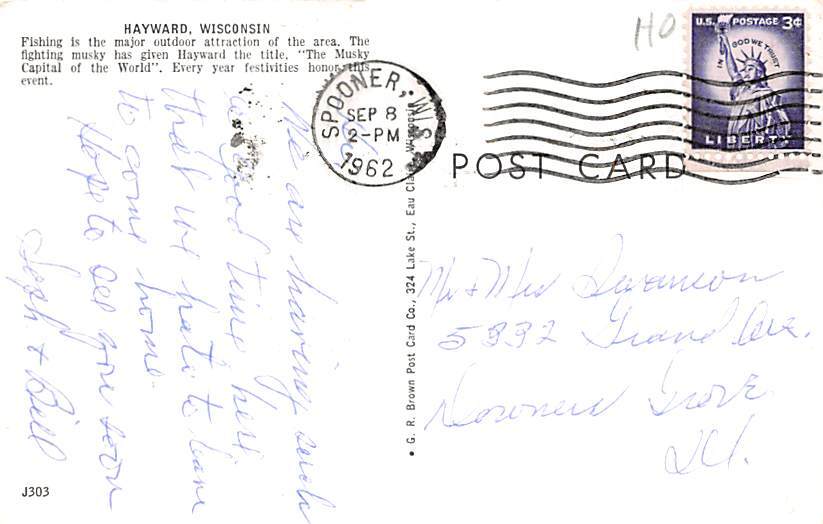 HAYWARD, WISCONSIN
Fishing is the major outdoor attraction of the area. The
fighting musky has given Hayward the title, "The Musky
Capital of the World". Every year festivities honor this
event.
HO
SPOONER, WIS.
SEP 8
2-PM
1962
U.S. POSTAGE 3¢
IN GOD WE TRUST
LIBERTY
POST CARD
We are having such
a good time here
that we hate to leave
to come home.
Hope to see you soon
& Bill
G. R. Brown Post Card Co., 324 Lake St., Eau Claire, Wisconsin
Mr & Mrs Swanson
5332 Grand Ave.
Downers Grove
Ill.
J303